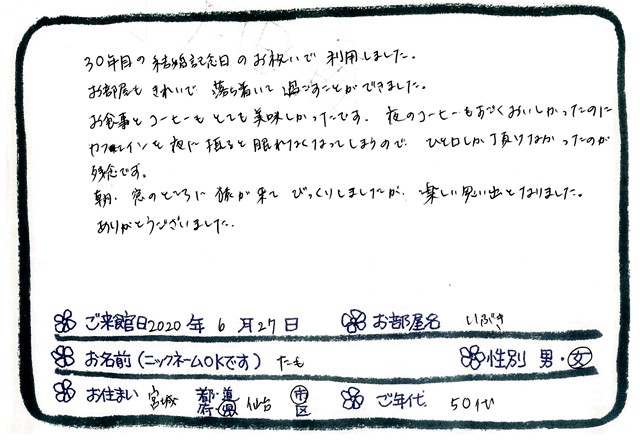 30年目の結婚記念日のお祝いで利用しました。
お部屋もきれいで落ち着いて過ごすことができました。
お食事とコーヒーもとても美味しかったです。夜のコーヒーもすごくおいしかったのに
カフェインを夜に摂ると眠れなくなってしまうので ひと口しか頂けなかったのが
残念です。
朝、窓のところに猿が来てびっくりしましたが、楽しい思い出となりました。
ありがとうございました。
ご来館日2020年6月27日 お部屋名 いぶき
お名前(ニックネームOKです) たも 性別 男・女
お住まい 宮城 都・道・府・県 仙台 市 区 ご年代 50代